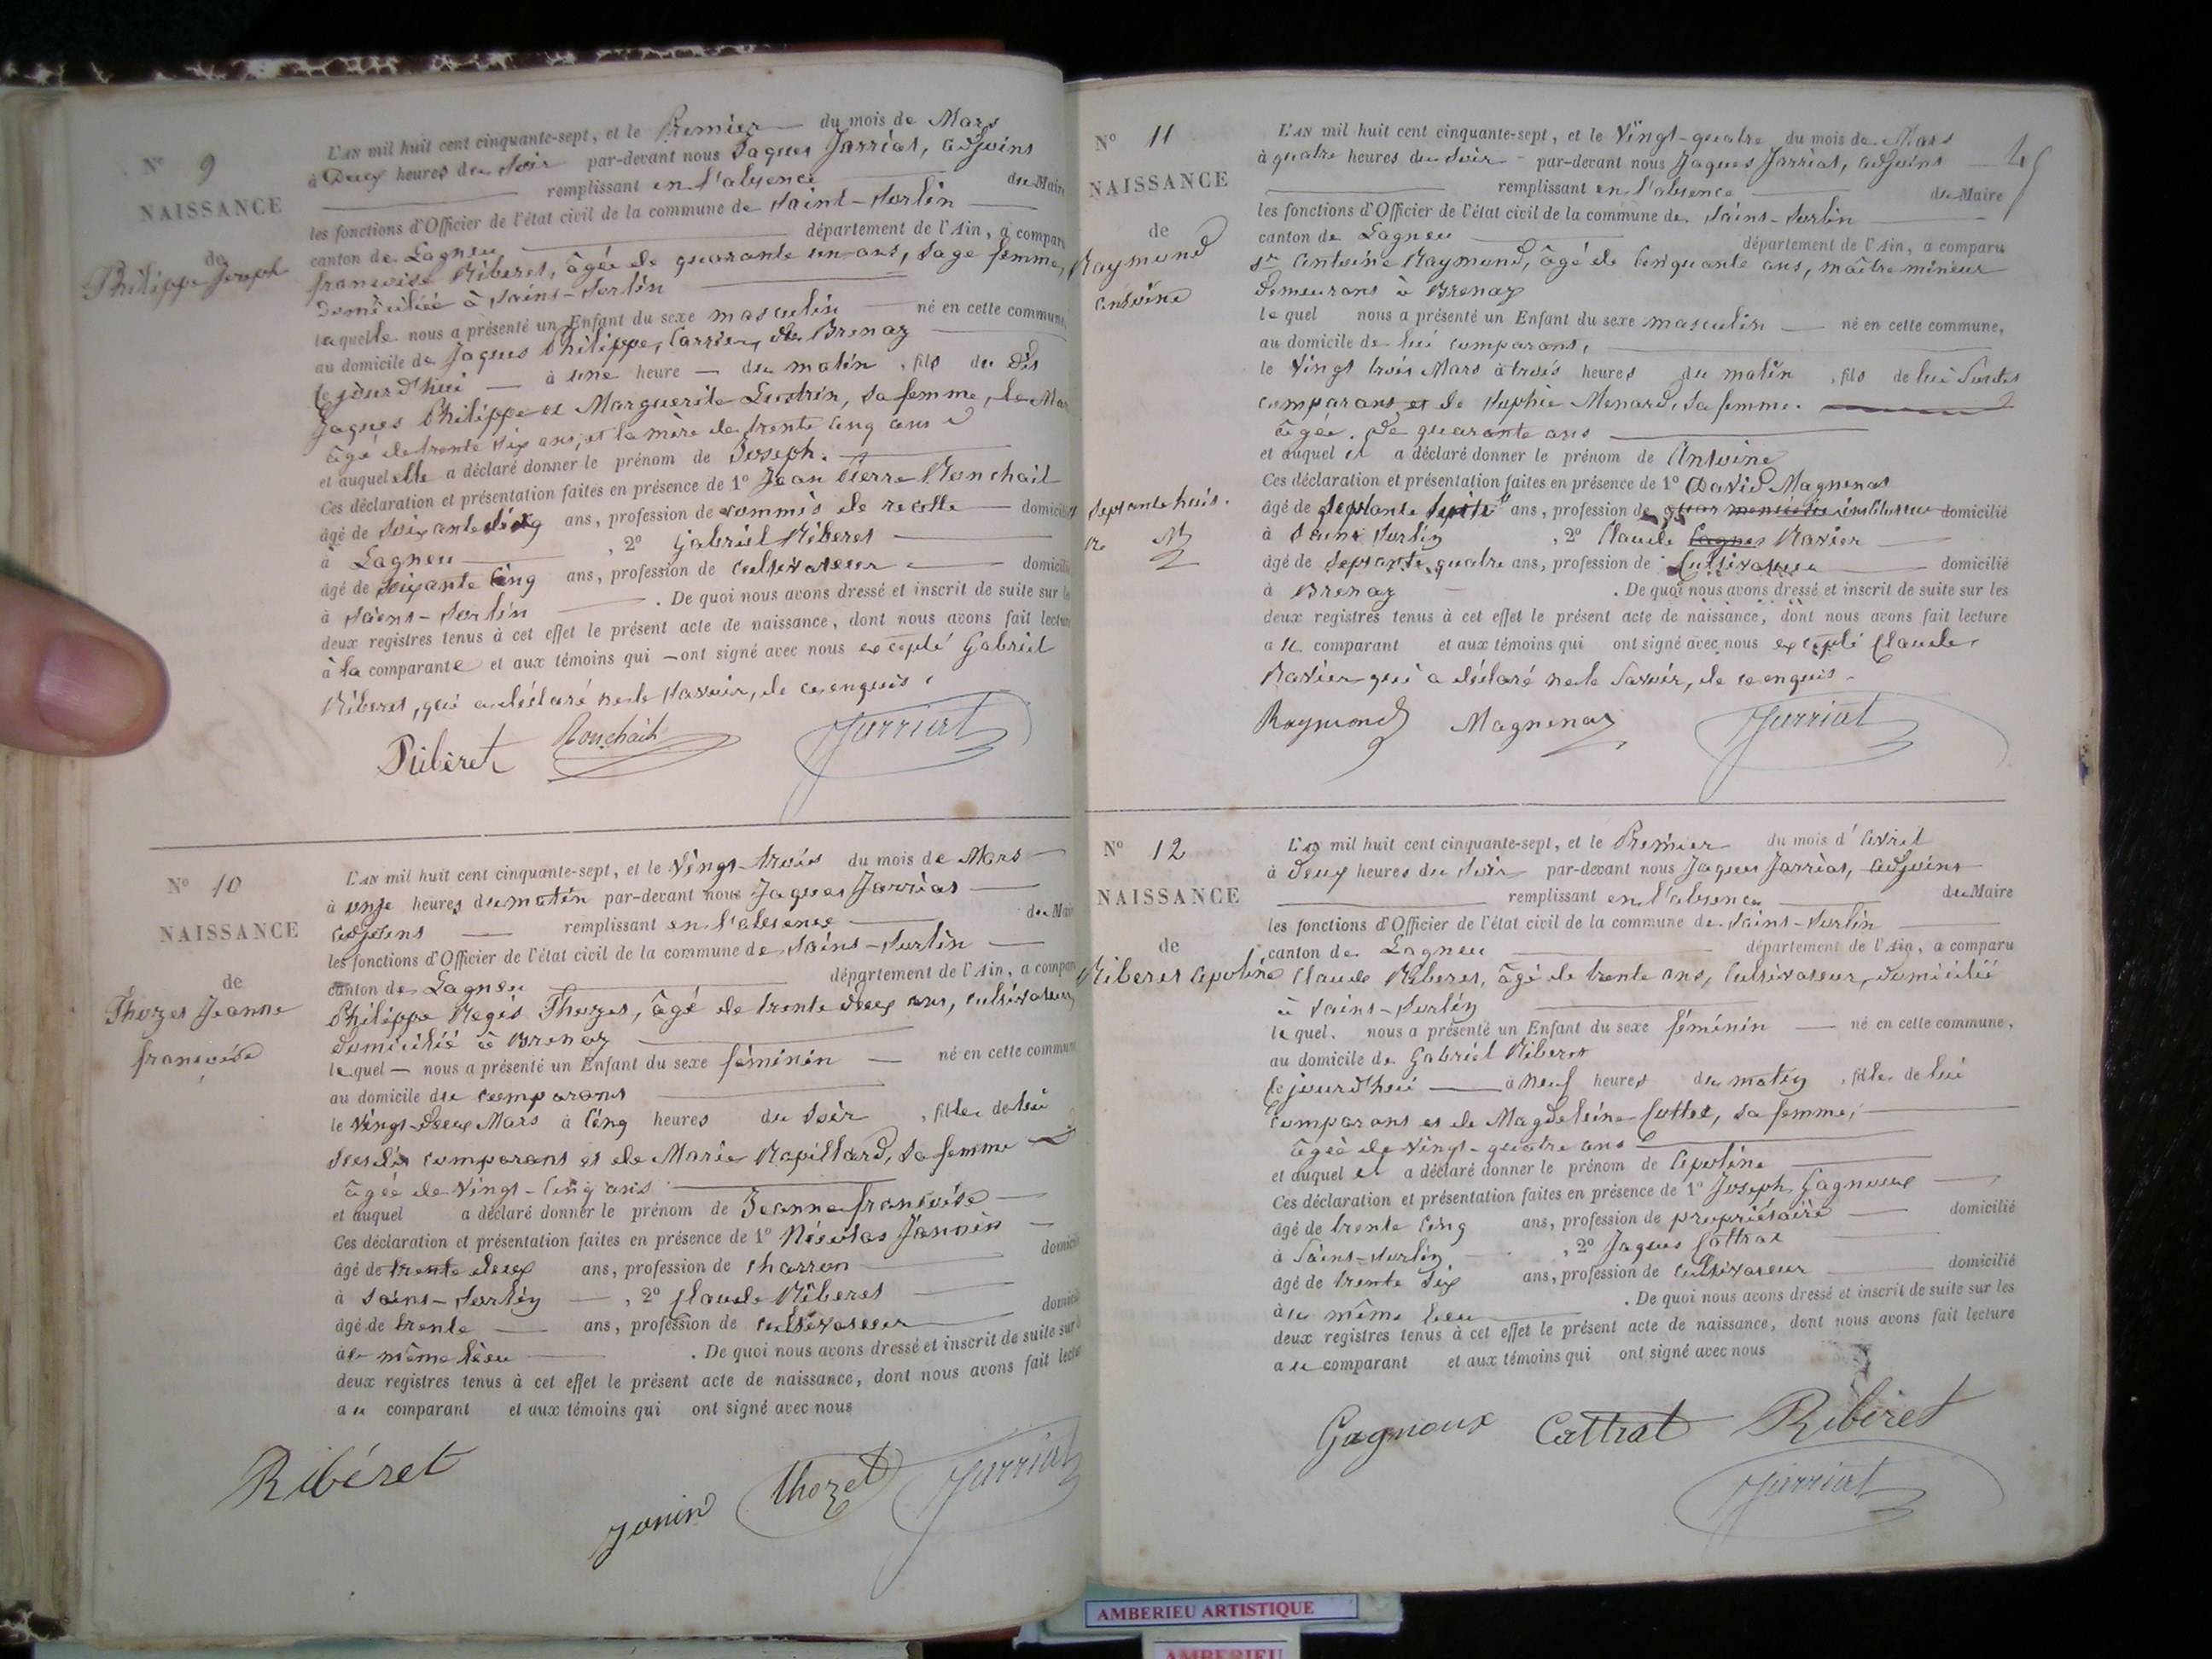 N° 9
NAISSANCE
de
Philippe Joseph
L'AN mil huit cent cinquante-sept, et le Premier du mois de Mars
à Deux heures du Soir par-devant nous Jaques Jarriat, adjoint
remplissant en l'absence du Maire
les fonctions d'Officier de l'état civil de la commune de Saint-Sorlin
canton de Lagneu département de l'Ain, a comparu
françoise Riberet, âgée de quarante un ans, Sage femme,
Domiciliée à Saint-Sorlin
laquelle nous a présenté un Enfant du sexe masculin né en cette commune,
au domicile de Jaques Philippe, Carrier, de Brenaz
ce jourd'hui à une heure du matin, fils du dit
Jaques Philippe et Marguerite, sa femme, le
âgé de trente six ans, et la mère de trente cinq ans
et auquel elle a déclaré donner le prénom de Joseph.
Ces déclaration et présentation faites en présence de 1° Jean Pierre Ronchail
âgé de Soixante ans, profession de commis de recette domicilié
à Lagneu, 2° Gabriel Riberet
âgé de Soixante cinq ans, profession de cultivateur domicilié
à Saint-Sorlin. De quoi nous avons dressé et inscrit de suite sur les
deux registres tenus à cet effet le présent acte de naissance, dont nous avons fait lecture
à la comparante et aux témoins qui ont signé avec nous excepté Gabriel
Riberet, qui a déclaré ne le Savoir, de ce enquis.
Ribéret Ronchail Jarriat
N° 10
NAISSANCE
de
Thozet Jeanne
françoise
L'AN mil huit cent cinquante-sept, et le Vingt-trois du mois de Mars
à onze heures du matin par-devant nous Jaques Jarriat
adjoint remplissant en l'absence du Maire
les fonctions d'Officier de l'état civil de la commune de Saint-Sorlin
canton de Lagneu département de l'Ain, a comparu
Philippe Regis Thozet, âgé de trente deux ans, cultivateur,
Domicilié à Brenaz
lequel nous a présenté un Enfant du sexe féminin né en cette commune
au domicile du comparant
le Vingt-deux Mars à Cinq heures du Soir, fille de lui
comparant et de Marie Rapillard, Sa femme
âgée de Vingt-cinq ans
et auquel a déclaré donner le prénom de Jeanne françoise
Ces déclaration et présentation faites en présence de 1° Nicolas Jannin
âgé de trente deux ans, profession de charron domicilié
à Saint-Sorlin, 2° Claude Riberet
âgé de trente ans, profession de cultivateur domicilié
à le même lieu. De quoi nous avons dressé et inscrit de suite sur les
deux registres tenus à cet effet le présent acte de naissance, dont nous avons fait lecture
au comparant et aux témoins qui ont signé avec nous
Ribéret Jonin Thozet Jarriat
N° 11
NAISSANCE
de
Raymond
Antoine
L'AN mil huit cent cinquante-sept, et le Vingt-quatre du mois de Mars
à quatre heures du Soir par-devant nous Jaques Jarriat, adjoint
remplissant en l'absence du Maire
les fonctions d'Officier de l'état civil de la commune de Saint-Sorlin
canton de Lagneu département de l'Ain, a comparu
Sr Antoine Raymond, âgé de Cinquante ans, maître mineur
Demeurant à Brenaz
lequel nous a présenté un Enfant du sexe masculin né en cette commune,
au domicile de lui comparant,
le Vingt trois Mars à trois heures du matin, fils de lui Susdit
comparant et de Sophie Menard, Sa femme.
âgée de quarante ans
et auquel il a déclaré donner le prénom de Antoine
Ces déclaration et présentation faites en présence de 1° David Magnenat
septante huit.
âgé de Septante ans, profession de instituteur domicilié
à Saint Sorlin, 2° Claude Ravier
âgé de Septante quatre ans, profession de Cultivateur domicilié
à Brenaz. De quoi nous avons dressé et inscrit de suite sur les
deux registres tenus à cet effet le présent acte de naissance, dont nous avons fait lecture
au comparant et aux témoins qui ont signé avec nous excepté Claude
Ravier qui a déclaré ne le Savoir, de ce enquis.
Raymond Magnenat Jarriat
N° 12
NAISSANCE
de
Riberet Apoline
L'AN mil huit cent cinquante-sept, et le Premier du mois d'Avril
à Deux heures du Soir par-devant nous Jaques Jarriat, adjoint
remplissant en l'absence du Maire
les fonctions d'Officier de l'état civil de la commune de Saint-Sorlin
canton de Lagneu département de l'Ain, a comparu
Claude Riberet, âgé de trente ans, Cultivateur, domicilié
à Saint-Sorlin
lequel nous a présenté un Enfant du sexe féminin né en cette commune,
au domicile de Gabriel Riberet
ce jourd'hui à Neuf heures du matin, fille de lui
comparant et de Magdeleine Cottet, sa femme,
âgée de Vingt-quatre ans
et auquel il a déclaré donner le prénom de Apoline
Ces déclaration et présentation faites en présence de 1° Joseph Gagnoux
âgé de trente cinq ans, profession de propriétaire domicilié
à Saint-Sorlin, 2° Jaques Cattrat
âgé de trente Six ans, profession de cultivateur domicilié
à le même lieu. De quoi nous avons dressé et inscrit de suite sur les
deux registres tenus à cet effet le présent acte de naissance, dont nous avons fait lecture
au comparant et aux témoins qui ont signé avec nous
Gagnoux Cattrat Ribéret
Jarriat
AMBERIEU ARTISTIQUE
AMBERIEU